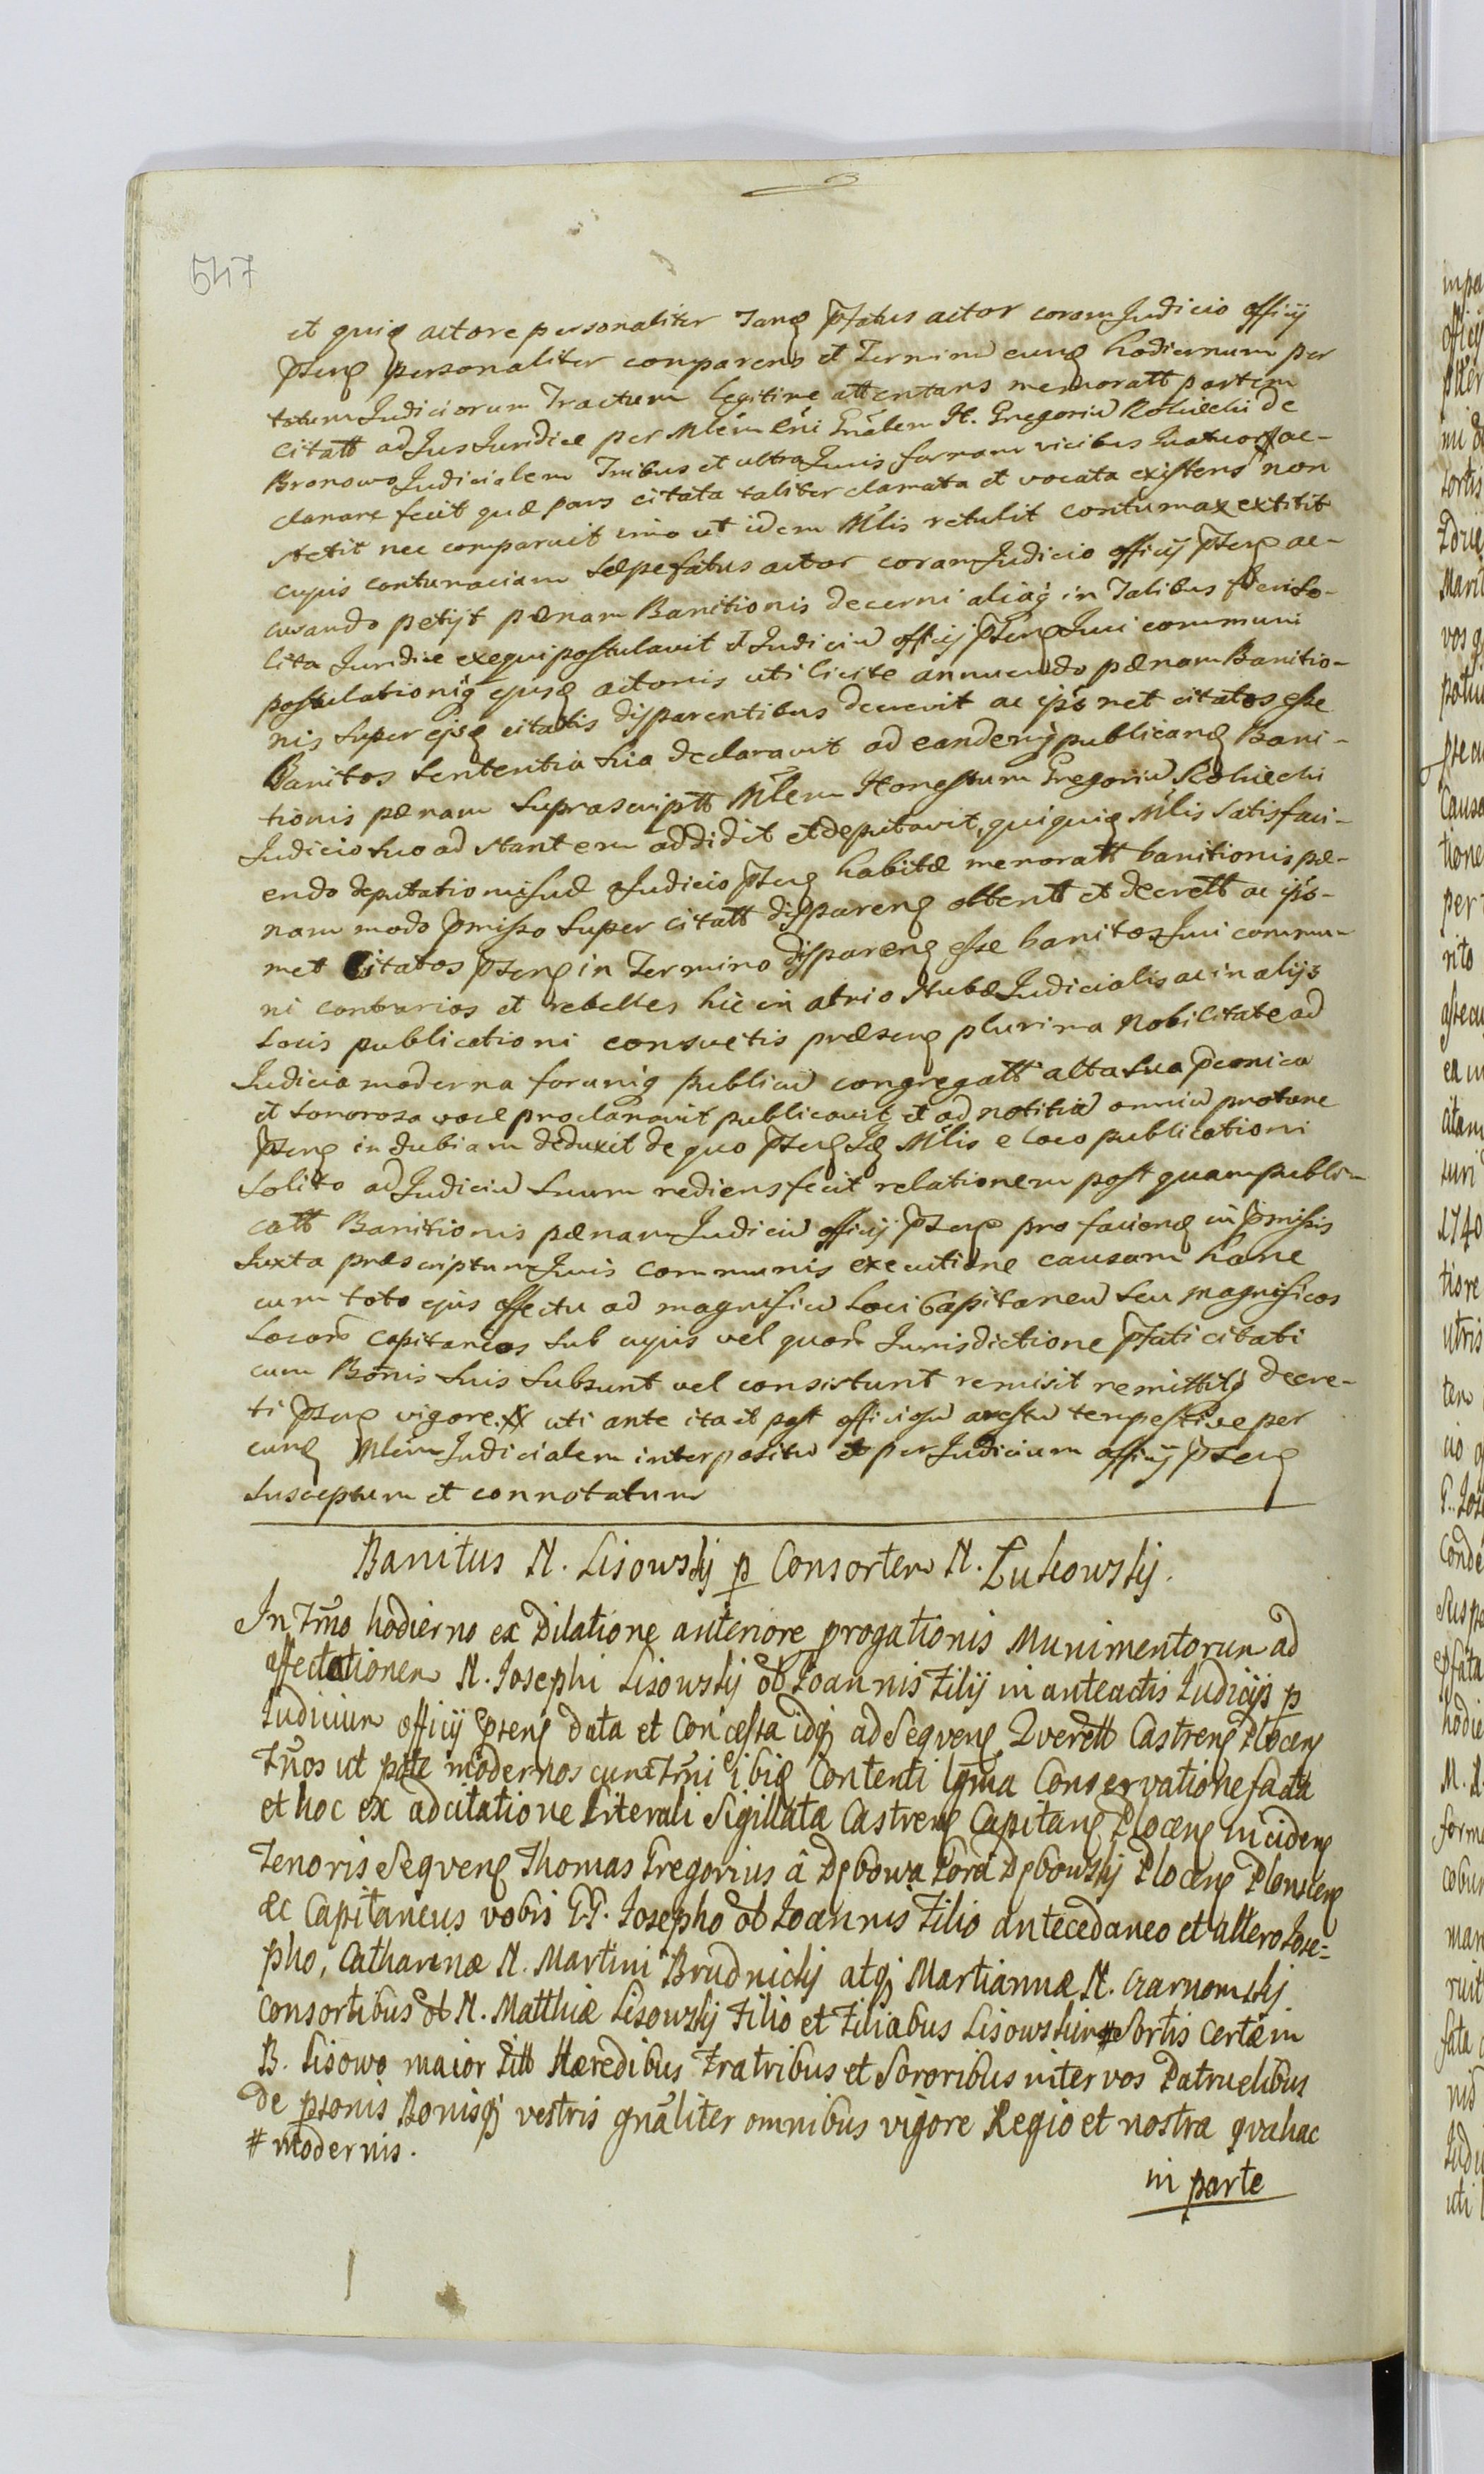 547
et quiq actore personaliter Tanq Pfatus actor coram Judicio officij
Pseng personaliter comparens et Terminu eunq hodiernum per
totum Judiciorum Tractum legitime attentans memoratt partem
citatt ad Jus Juridice per Mlem Eni Gnalem H. Gregoriu Rokicki de
Bronowo Judicialem Tribus et ultra Juris formam vicibus Quatuor ac-
clamare fecit quæ pars citata taliter clamata et vocata existens non
stetit nec comparuit imo ut idem Mlis retulit contumax extitit
cujus contumaciam Sæpefatus actor coram Judicio officij Pseng ac-
cusando petijt pænam Banitionis decerni aliaq in Talibus fieri so-
lita Juridice exequi postulavit et Judiciu officij Pseng Juri communi
postulationiq ejusq actoris uti licite annuendo pænam Banitio-
nis super ejsq citatis disparentibus decrevit ac ipsmet citatos esse
Banitos Sententia sua declaravit ad eandemq publicanq Bani-
tionis pænam suprascriptt Mlem Honestum Gregoriu Rokicki
Judicio suo ad stantem addidit et deputavit, qui quiq Mlis satisfaci-
endo deputationi suæ a Judicio Pseng habitæ memoratt banitionis pæ-
nam modo Pmisso super citatt dispareng obtentt et decrett ac ips-
met Citatos Pseng in Termino dispareng esse banitos Juri commu-
ni contrarios et rebelles hic in atrio Stubæ Judicialis ac in alijs
Locis publicationi consvetis præseng plurima Nobilitate ad
Judicia moderna forumq publicu congregatt alta sua Pconica
et sonorosa voce proclamavit publicavit et ad notitia omniu protune
Pseng indubiam deduxit de quo Pseng Idq Mlis e loco publicationi
solito ad Judiciu suum rediens fecit relationem post quam publi-
catt Banitionis pænam Judiciu officij Pseng pro facienq in Pmissis
Juxta præscriptum Juris communis executione causam hanc
cum toto ejus effectu ad magnificu Loci Capitaneu seu magnificos
Locorm capitaneos sub cujus vel quorm Jurisdictione Pfati citati
cum Bonis suis subsunt vel consistunt remisit remittitq decre-
ti Pseng vigore. uti ante ita et post officiosu arestu tempestive per
eunq Mlem Judicialem interpositu et per Judicium officij Pseng
susceptum et connotatum
Banitus N. Lisowskj p Consortem N. Zukowskj.
In Tmo hodierno ex Dilatione anteriore progationis Munimentorum ad
affectationem N. Josephi Lisowskj ol Joannis Filij in anteactis Judicijs p
Judicium officij Pseng data et concessa idq ad Seqveng Qverell Castreng Ploceng
Tmos ut pote modernos cum Tmi ibiq Contenti lgma Conservatione facta
et hoc ex adcitatione Literali Sigillata Castreng Capitanq Ploceng incideng
Tenoris Seqveng Thomas Gregorius â Dębowa Gora Dębowskj Ploceng Plonsceng
&c Capitaneus vobis GG. Josepho ol Joannis Filio antecedaneo et altero Jose=
pho, Catharinæ N. Martini Brudnickj atqj Martiannæ N. Czarnomskj
Consortibus ol N. Matthiæ Lisowskj Filio et Filiabus Lisowskim # Sortis Certæ in
B. Lisowo maior Titt Hæredibus Fratribus et Sororibus inter vos Patruelibus
de psonis Bonisqj vestris gnaliter omnibus vigore Regio et nostra qva hac
# modernis.
in parte